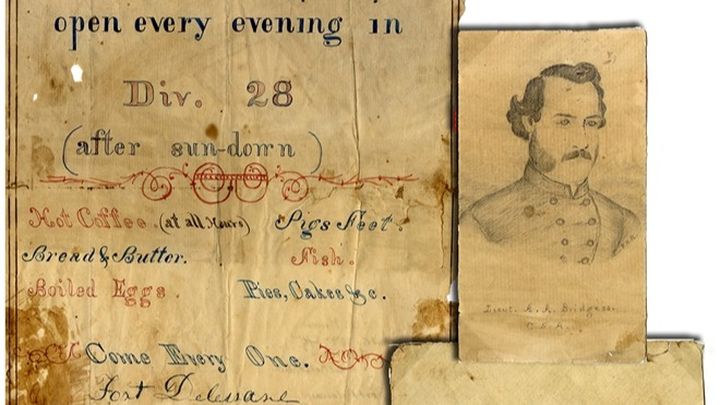 open every evening in
Div. 28
(after sun-down)
Hot Coffee. (at all Hours) Pigs Feet.
Bread & Butter. Fish.
Boiled Eggs. Pies, Cakes &c.
Come Every One.
Fort Delaware
Lieut. Bridges.
C.S.A.